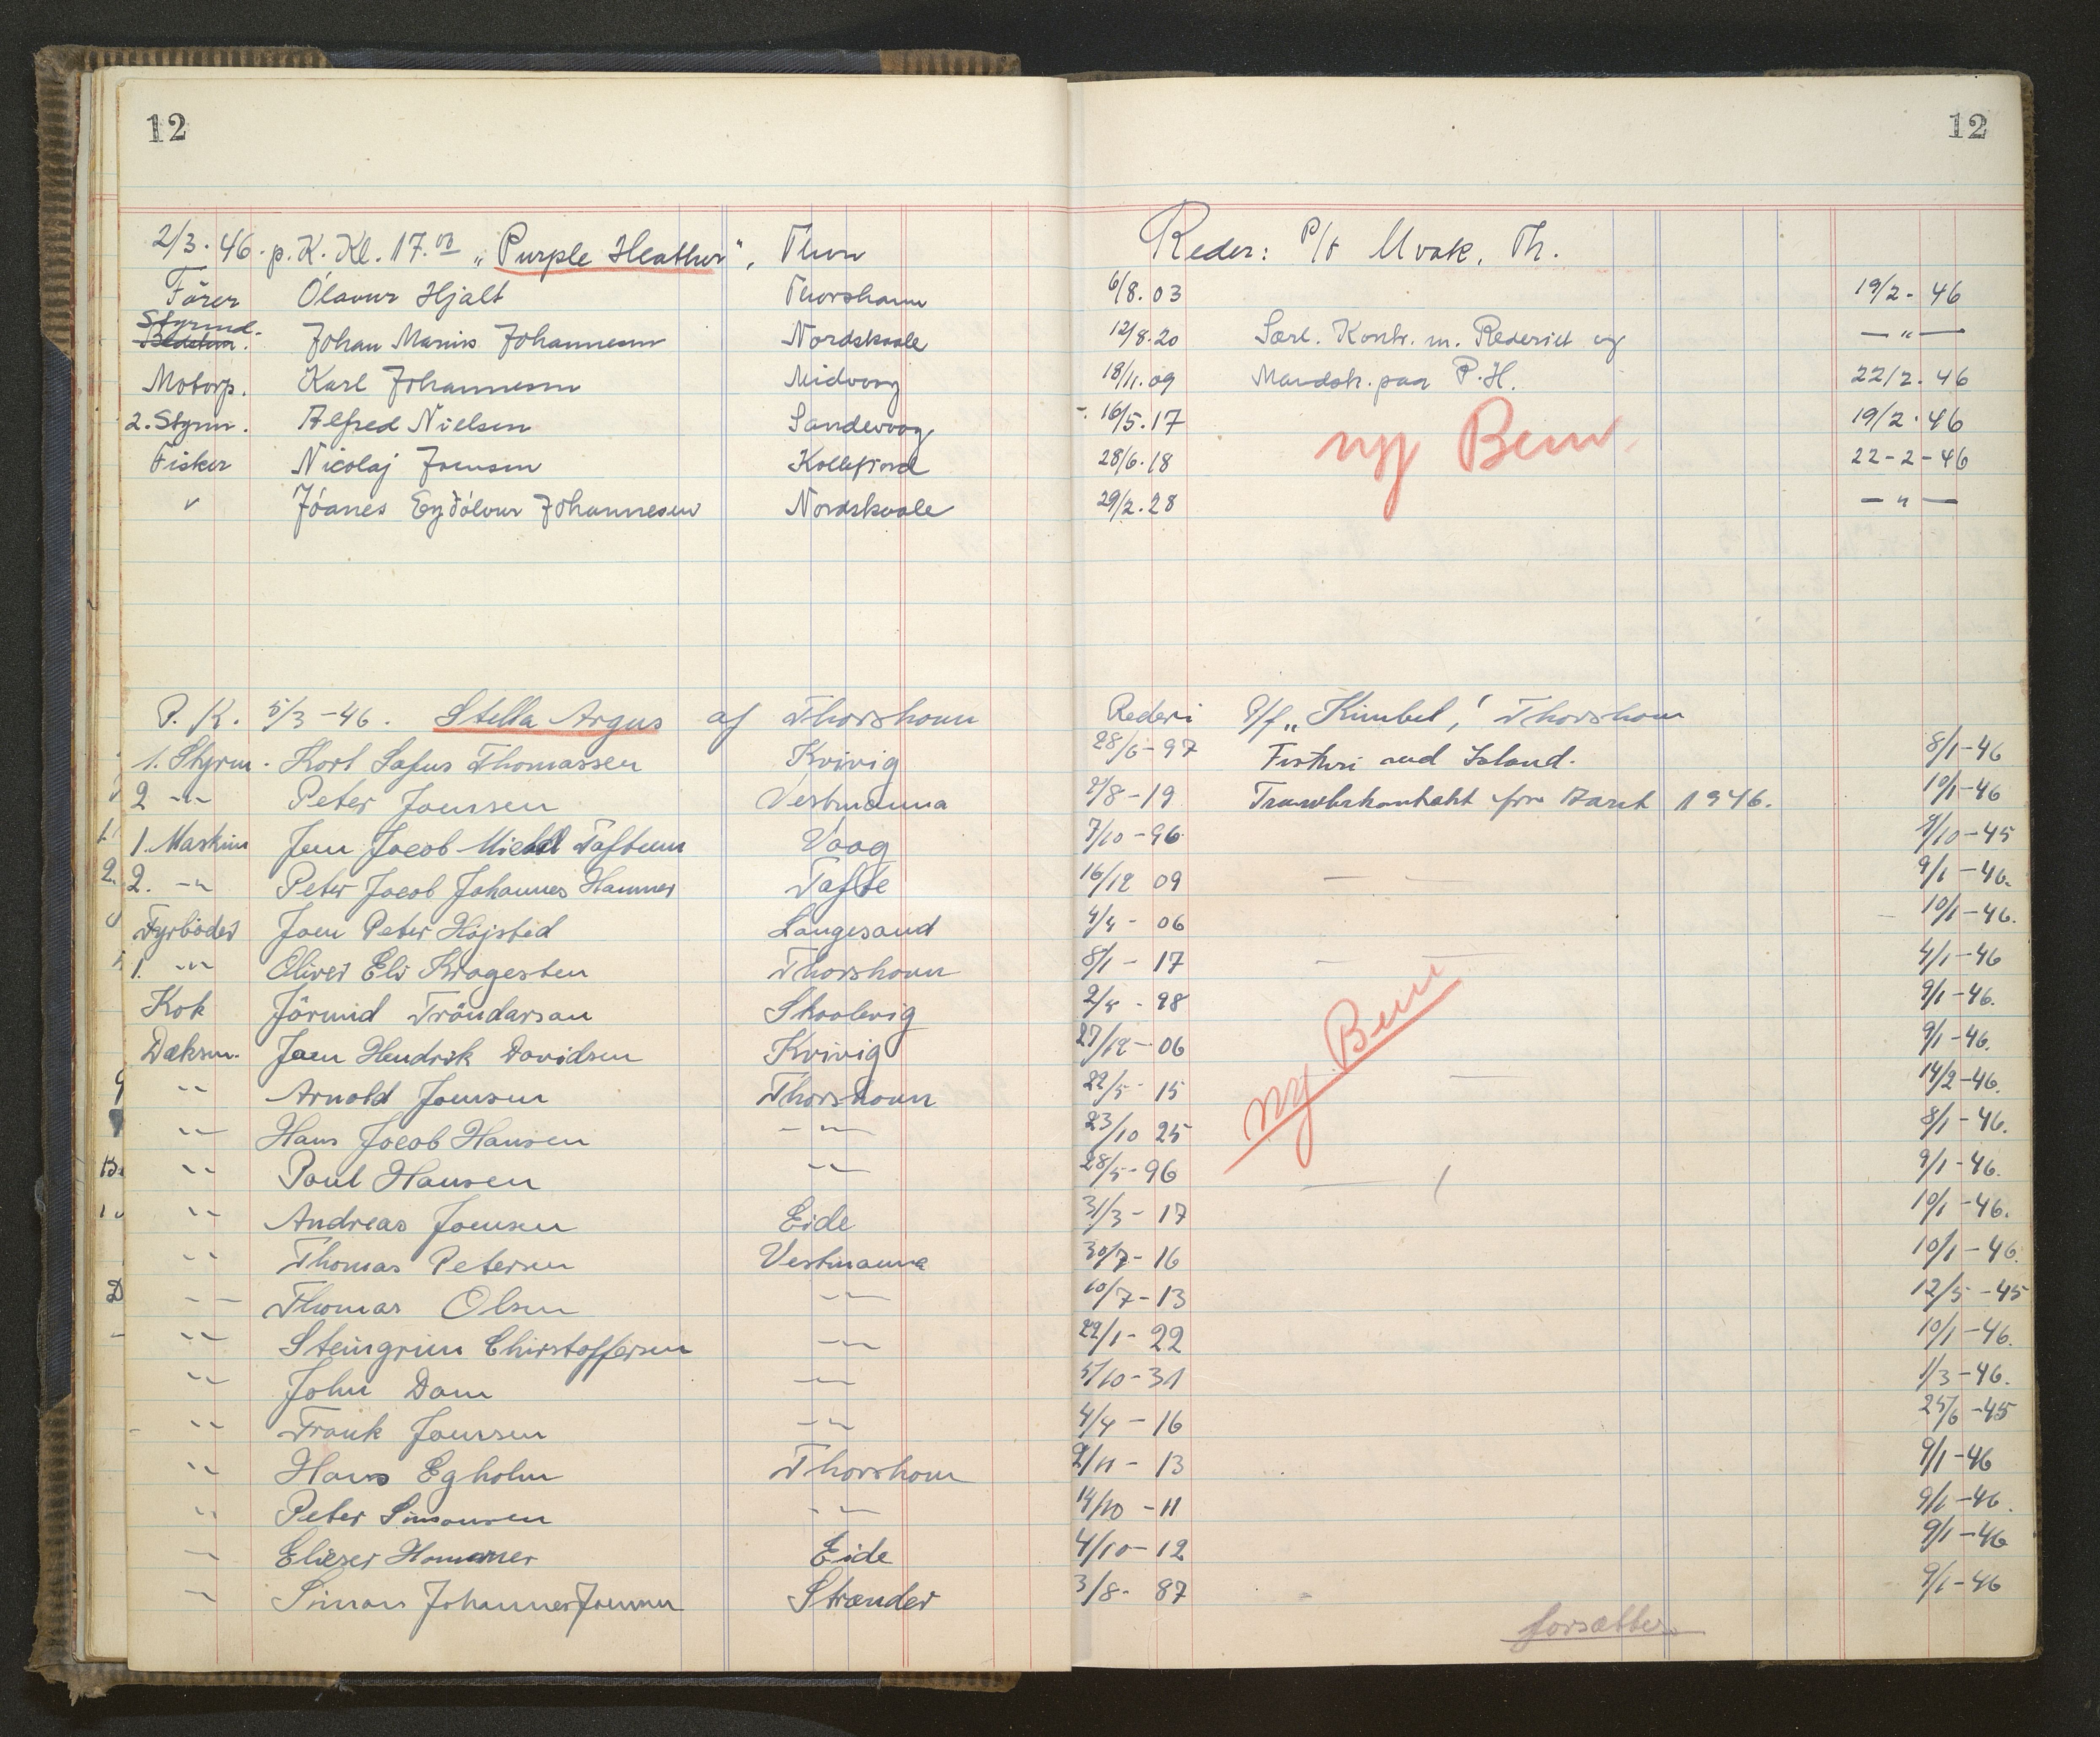 12 12
2/3. 46. p. K. Kl. 17.00 „Purple Heather“, Thvn Reder: P/r Mvak, Th.
Förer Ólavur Hjalt Thorshavn 6/8. 03 19/2. 46
Styrmd. Johan Marius Johannesen Nordskaale 12/8. 20 Særl. Kontr. m. Rederiet og — „ —
Motorp. Karl Johannesen Midvaag 18/11. 09 Mandsk. paa P. H. 22/2. 46
2. Styrm. Alfred Nielsen Sandevaag 16/5. 17 ny Bem. 19/2. 46
Fisker Nicolaj Joensen Kollefjord 28/6. 18 22-2-46
" Jóanes Eyðólvur Johannesen Nordskaale 29/2. 28 — " —
P. K. 5/3-46. Stella Argus af Thorshavn Rederi P/f „Kimbil,“ Thorshavn
1. Styrm. Karl Sofus Thomassen Kvivig 28/6-97 Fiskeri ved Island. 8/1-46
2 -"- Peter Joensen Vestmanna 2/8-19 Trawlerkontrakt fra Marts 1946. 10/1-46
1. Maskin Jens Jacob Michal Tafteun Vaag 7/10-96 9/10-45
2. -"- Peter Jacob Johannes Hammer Tafte 16/12 09 9/1-46.
Fyrbøder Joen Peter Højsted Langesand 4/4-06 10/1-46.
1. -"- Oliver Eli Kragesteen Thorshavn 8/1-17 4/1-46
Kok Jörmind Tróndarson Skaalevig 2/5-98 9/1-46.
Dæksm. Joen Hendrik Davidsen Kvivig 27/12-06 9/1-46.
-"- Arnold Joensen Thorshavn 22/5-15 ny Bem 14/2-46.
-"- Hans Jacob Hansen -"- 23/10 25 8/1-46.
-"- Poul Hansen -"- 28/5-96 9/1-46.
-"- Andreas Joensen Eide 31/3-17 10/1-46.
-"- Thomas Petersen Vestmanna 30/7-16 10/1-46.
-"- Thomas Olsen -"- 10/7-13 12/5-45
-"- Steingrim Christoffersen -"- 22/1-22 10/1-46.
-"- John Dam -"- 5/10-31 1/3-46.
-"- Frank Joensen -"- 4/4-16 25/6-45
-"- Hans Egholm Thorshavn 2/11-13 9/1-46
-"- Peter Simonsen -"- 14/10-11 9/1-46.
-"- Elieser Hammer Eide 4/10-12 9/1-46
-"- Simon Johannes Joensen Strænder 3/8-87 9/1-46
forsætter